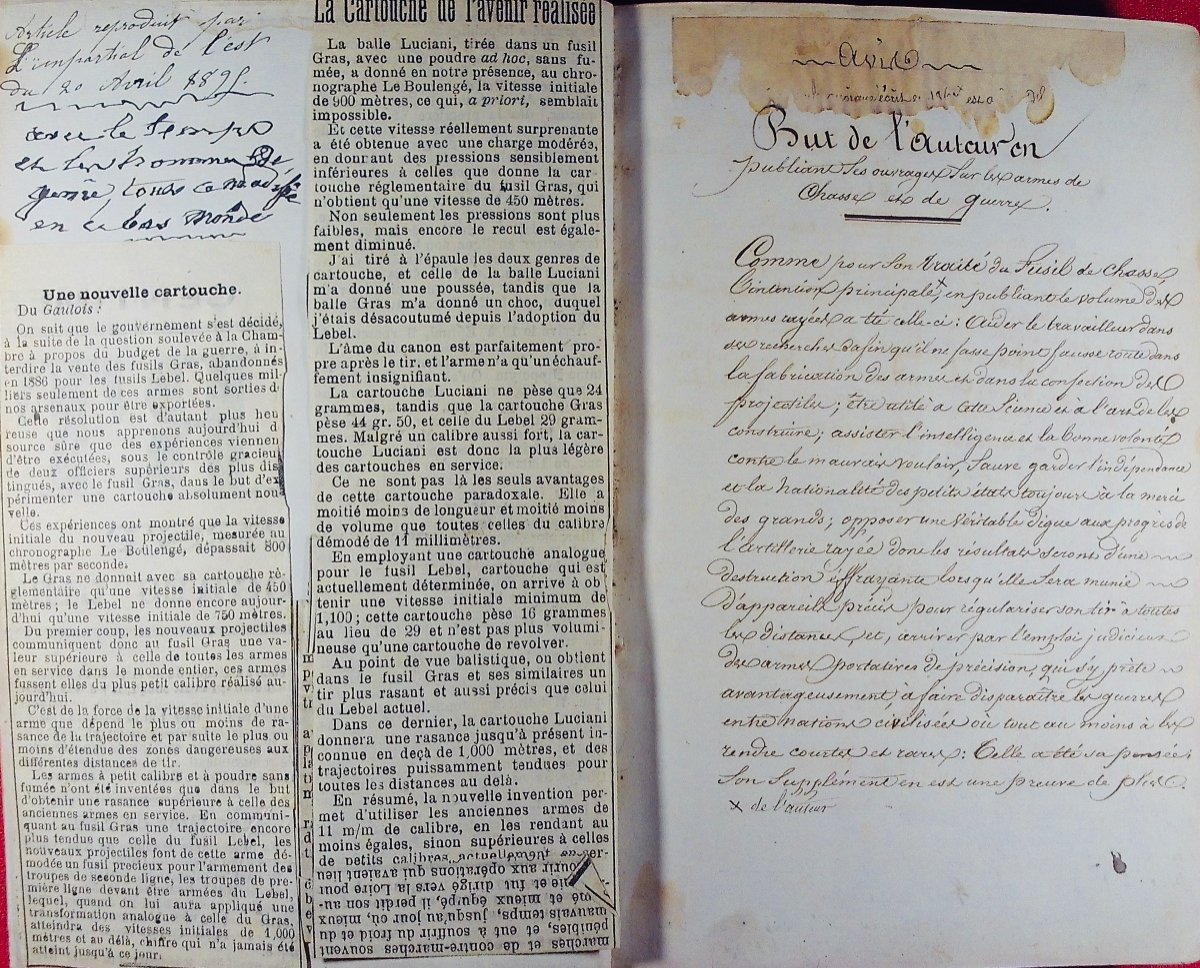 Article reproduit par
L'impartial de l'est
du 20 Avril 1895.
avec le temps
et les hommes de
genie, tous ce modifie
en ce bas monde
Une nouvelle cartouche.
Du Gaulois :
On sait que le gouvernement s'est décidé,
à la suite de la question soulevée à la Cham-
bre à propos du budget de la guerre, à in-
terdire la vente des fusils Gras, abandonnés
en 1886 pour les fusils Lebel. Quelques mil-
liers seulement de ces armes sont sorties de
nos arsenaux pour être exportées.
Cette résolution est d'autant plus heu
reuse que nous apprenons aujourd'hui d
source sûre que des expériences viennen
d'être exécutées, sous le contrôle gracieu
de deux officiers supérieurs des plus dis
tingués, avec le fusil Gras, dans le but d'ex
périmenter une cartouche absolument nou
velle.
Ces expériences ont montré que la vitesse
initiale du nouveau projectile, mesurée au
chronographe Le Boulengé, dépassait 800
mètres par seconde.
Le Gras ne donnait avec sa cartouche ré-
glementaire qu'une vitesse initiale de 450
mètres ; le Lebel ne donne encore aujour-
d'hui qu'une vitesse initiale de 750 mètres.
Du premier coup, les nouveaux projectiles
communiquent donc au fusil Gras une va-
leur supérieure à celle de toutes les armes
en service dans le monde entier, ces armes
fussent elles du plus petit calibre réalisé au-
jourd'hui.
C'est de la force de la vitesse initiale d'une
arme que dépend le plus ou moins de ra-
sance de la trajectoire et par suite le plus ou
moins d'étendue des zones dangereuses aux
différentes distances de tir.
Les armes à petit calibre et à poudre sans
fumée n'ont été inventées que dans le but
d'obtenir une rasance supérieure à celle des
anciennes armes en service. En communi-
quant au fusil Gras une trajectoire encore
plus tendue que celle du fusil Lebel, les
nouveaux projectiles font de cette arme dé-
modée un fusil precieux pour l'armement des
troupes de seconde ligne, les troupes de pre-
mière ligne devant être armées du Lebel,
lequel, quand on lui aura appliqué une
transformation analogue à celle du Gras,
atteindra des vitesses initiales de 1,000
mètres et au délà, chiffre qui n'a jamais été
atteint jusqu'à ce jour.
La Cartouche de l'avenir réalisée
La balle Luciani, tirée dans un fusil
Gras, avec une poudre ad hoc, sans fu-
mée, a donné en notre présence, au chro-
nographe Le Boulengé, la vitesse initiale
de 900 mètres, ce qui, a priori, semblait
impossible.
Et cette vitesse réellement surprenante
a été obtenue avec une charge modérés,
en donnant des pressions sensiblement
inférieures à celles que donne la car
touche réglementaire du fusil Gras, qui
n'obtient qu'une vitesse de 450 mètres.
Non seulement les pressions sont plus
faibles, mais encore le recul est égale-
ment diminué.
J'ai tiré à l'épaule les deux genres de
cartouche, et celle de la balle Luciani
m'a donné une poussée, tandis que la
balle Gras m'a donné un choc, duquel
j'étais désacoutumé depuis l'adoption du
Lebel.
L'âme du canon est parfaitement pro-
pre après le tir, et l'arme n'a qu'un échauf-
fement insignifiant.
La cartouche Luciani ne pèse que 24
grammes, tandis que la cartouche Gras
pèse 44 gr. 50, et celle du Lebel 29 gram-
mes. Malgré un calibre aussi fort, la car-
touche Luciani est donc la plus légère
des cartouches en service.
Ce ne sont pas là les seuls avantages
de cette cartouche paradoxale. Elle a
moitié moins de longueur et moitié moins
de volume que toutes celles du calibre
démodé de 11 millimètres.
En employant une cartouche analogue
pour le fusil Lebel, cartouche qui est
actuellement déterminée, on arrive à ob
tenir une vitesse initiale minimum de
1,100 ; cette cartouche pèse 16 grammes
au lieu de 29 et n'est pas plus volumi-
neuse qu'une cartouche de revolver.
Au point de vue balistique, ou obtient
dans le fusil Gras et ses similaires un
tir plus rasant et aussi précis que celui
du Lebel actuel.
Dans ce dernier, la cartouche Luciani
donnera une rasance jusqu'à présent in-
connue en deçà de 1,000 mètres, et des
trajectoires puissamment tendues pour
toutes les distances au délà.
En résumé, la nouvelle invention per-
met d'utiliser les anciennes armes de
11 m/m de calibre, en les rendant au
moins égales, sinon supérieures à celles
de petits calibres actuellement en ser-
courir aux opérations qui avaient lieu
et fut dirigé vers la Loire pour
mé et mieux équipé, il perdit son an-
mauvais temps, jusqu'au jour où, mieux
pénibles, et eut à souffrir du froid et du
marches et de contre-marches souvent
Avis
But de l'Auteur en
publiant ses ouvrages sur les armes de
Chasse et de guerre.
Comme pour son traité du Fusil de chasse,
l'intention principale x, en publiant le volume des
armes rayées a été celle-ci : Aider le travailleur dans
ses recherches afin qu'il ne fasse point fausse route dans
la fabrication des armes et dans la confection des
projectiles ; être utile à cette Science et à l'art de les
construire ; assister l'intelligence et la bonne volonté
contre le mauvais vouloir, sauve garder l'indépendance
et la nationalité des petits états toujours à la merci
des grands ; opposer une véritable digue aux progrès de
l'artillerie rayée dont les résultats seront d'une
destruction effrayante lorsqu'elle sera munie
d'appareils précis pour régulariser son tir à toutes
les distances, et, arriver par l'emploi judicieux
des armes portatives de précision, qui s'y prête
avantageusement, à faire disparaître les guerres
entre nations civilisées où tout au moins à les
rendre courtes et rares : Telle a été sa pensée ;
Son Supplément en est une preuve de plus.
x de l'auteur